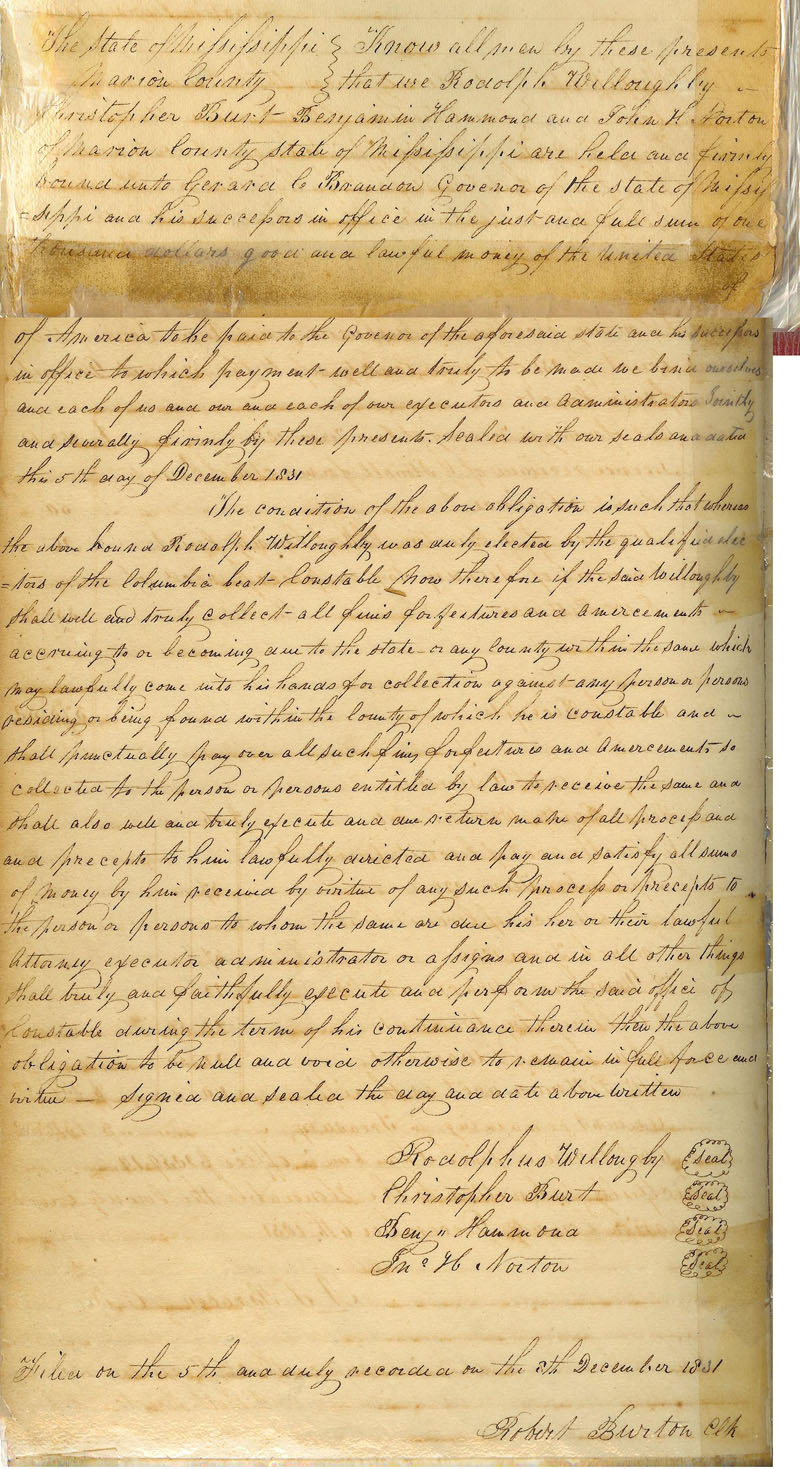 The State of Mississippi } Know all men by these presents
Marion County } that we Rodolph Willoughby ~
Christopher Burt Benjamin Hammond and John H. Norton
of Marion County state of Mississippi are held and firmly
bound unto Gerard C Brandon Govenor of the state of Missis
=sippi and his successors in office in the just and full sum of one
thousand dollars good and lawful money of the United States
of
of America to be paid to the Govenor of the aforesaid state and his successors
in office to which payment well and truly to be made we bind ourselves
and each of us and our and each of our executors and administrators Jointly
and severally firmly by these presents. Sealed with our seals and dated
this 5th day of December 1831
The condition of the above obligation is such that whereas
the above bound Rodolph Willoughby was duly elected by the qualified elec
=tors of the Columbia beat Constable Now therefore if the said Willoughby
shall well and truly collect all fines forfeitures and amercements ~
accruing to or becoming due to the state or any County within the same which
may lawfully come into his hands for collection against any person or persons
residing or being found within the County of which he is constable and ~
shall punctually pay over all such fines forfeitures and amercements so
collected to the person or persons entitled by law to receive the same and
shall also well and truly execute and due return make of all process and
and precepts to him lawfully directed and pay and satisfy all sums
of money by him received by virtue of any such process or precepts to
the person or persons to whom the same are due his her or their lawful
Attorney executor administrator or assigns and in all other things
shall truly and faithfully execute and perform the said office of
Constable during the term of his continuance therein then the above
obligation to be null and void otherwise to remain in full force and
virtue — Signed and sealed the day and date above written
Rodolphus Willougby Seal
Christopher Burt Seal
Benj " Hammond Seal
Jno H Norton Seal
Filed on the 5th and duly recorded on the 8th December 1831
Robert Burton Clk